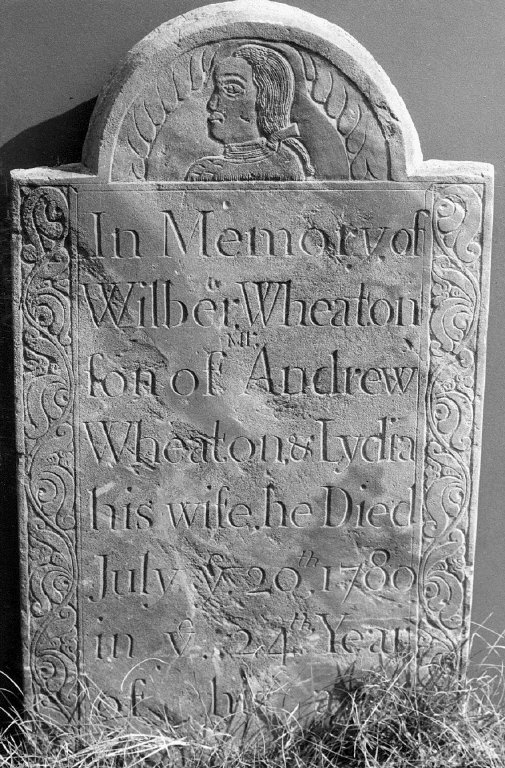 In Memory of
Wilber Wheaton
Mr.
ſon of Andrew
Wheaton, & Lydia
his wife, he Died
July yͤ. 20th. 1780
in yͤ. 24th Year
of his